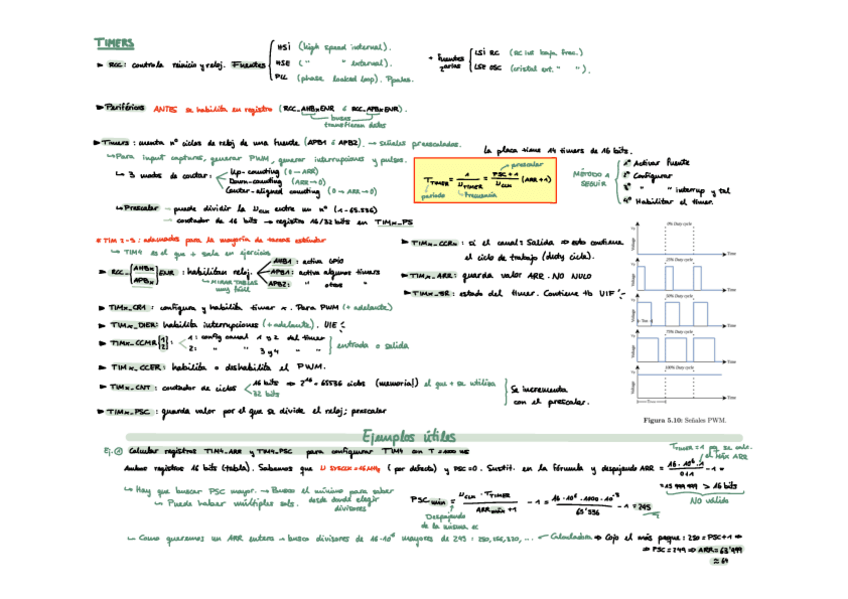 TIMERS
► RCC: controla reinicio y reloj. Fuentes
HSI (high speed internal).
HSE ( " " external).
PLL (phase locked loop). Ppales.
+ Fuentes
LSI RC (RC int baja frec.)
LSE OSC (cristal ext. " " ).
► Periféricos ANTES se habilita en registro (RCC_AHBxENR ó RCC_APBxENR).
buses
transfieren datos
► Timers: cuenta nº ciclos de reloj de una fuente (APB1 ó APB2). → señales preescaladas.
La placa tiene 14 timers de 16 bits.
↳ Para input capture, generar PWM, generar interrupciones y pulsos.
↳ 3 modos de contar:
Up-counting (0→ARR)
Down-counting (ARR→0)
Center-aligned counting (0→ARR→0)
preescaler
T TIMER = 1 / ν TIMER = PSC+1 / ν CLK (ARR+1)
periodo
frecuencia
MÉTODO A SEGUIR
1º Activar fuente
2º Configurar
3º " " interrup y tal
4º Habilitar el timer.
↳ Prescaler → puede dividir la ν CLK entre un nº (1-65.536)
↳ contador de 16 bits → registro 16/32 bits en TIMx_PS
* TIM 2-5: adecuados para la mayoría de tareas estándar
↳ TIM4 es el que + sale en ejercicios
► RCC_[AHBx APBx]ENR: habilitan reloj.
AHB1: activa GPIO
APB1: activa algunos timers
APB2: " otros "
↳ MIRAR TABLAS
muy fácil
► TIMx_CCRx: si el canal: Salida ⇒ esto contiene
el ciclo de trabajo (duty cicle).
► TIMx_ARR: guarda valor ARR. NO NULO
► TIMx_SR: estado del timer. Contiene tb UIF
► TIMx_CR1: configura y habilita timer x. Para PWM (+ adelante)
► TIMx_DIER: habilita interrupciones (+ adelante). UIE
► TIMx_CCMR[1 2]:
1: config canal 1 y 2 del timer
2: " " 3 y 4 " "
entrada o salida
► TIMx_CCER: habilita o deshabilita el PWM.
► TIMx_CNT: contador de ciclos
16 bits ⇒ 2^16 = 65536 ciclos (memoria!) el que + se utiliza
32 bits
Se incrementa
con el prescaler.
► TIMx_PSC: guarda valor por el que se divide el reloj; prescaler
0% Duty cycle
25% Duty cycle
50% Duty cycle
75% Duty cycle
100% Duty cycle
Voltage
Time
Figura 5.10: Señales PWM.
Ejemplos útiles
Ej. ① Calcular registros TIM4_ARR y TIM4_PSC para configurar TIM4 con T=1000 ms
Ambos registros 16 bits (tabla). Sabemos que ν SYSCLK = 16 MHz (por defecto) y PSC=0. Sustit. en la fórmula y despejando ARR = 16·10^6·1 / 0+1 − 1 =
el máx ARR
= 15 999 999 > 16 bits
NO válido
↳ Hay que buscar PSC mayor. → Busco el mínimo para saber
desde donde elegir
divisores
↳ Puede haber múltiples sols.
PSC mín = ν CLK · T TIMER / ARR máx + 1 − 1 = 16·10^6·1000·10^-3 / 65'536 − 1 = 243
Despejando
de la misma ec
↳ Como queremos un ARR entero → busco divisores de 16·10^6 mayores de 243: 250, 256, 320, ... ↙ Calculadora ⇒ Cojo el más peque: 250 = PSC+1 ⇒
⇒ PSC = 249 ⇒ ARR = 63'999